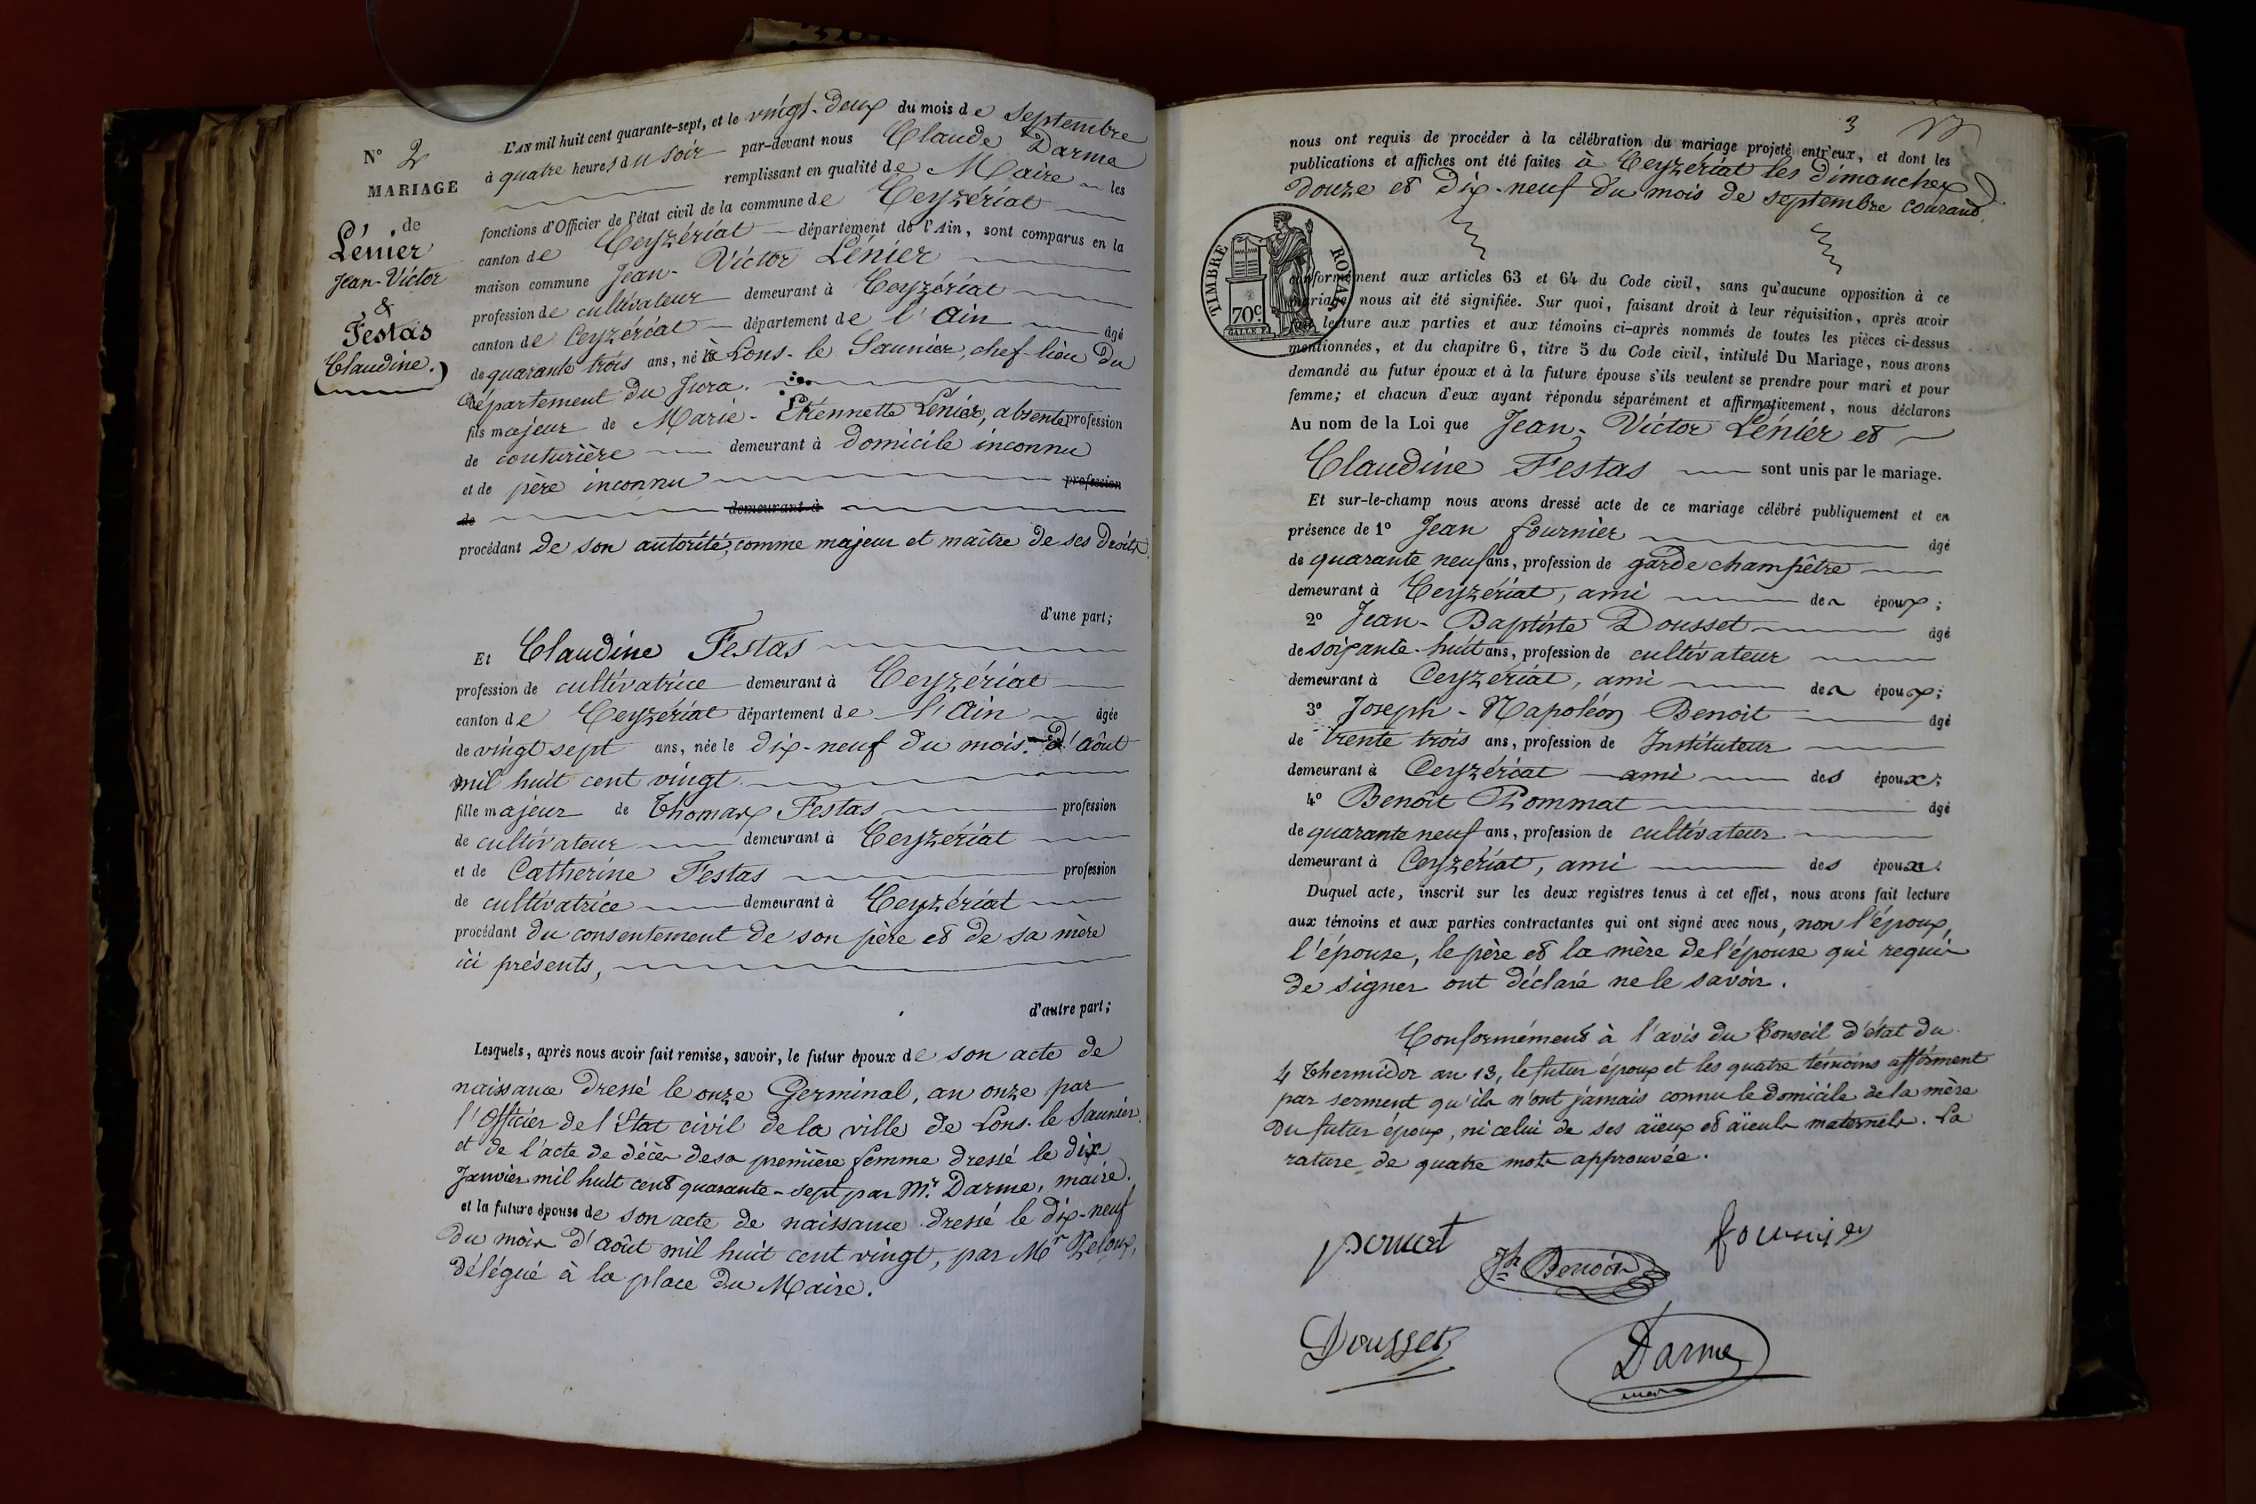 N° 2
MARIAGE
de
Lénier
Jean-Victor
&
Festas
Claudine.
L'AN mil huit cent quarante-sept, et le vingt-deux du mois de septembre
à quatre heures du soir par-devant nous Claude Darme
remplissant en qualité de Maire les
fonctions d'Officier de l'état civil de la commune de Ceyzériat
canton de Ceyzériat département de l'Ain, sont comparus en la
maison commune Jean-Victor Lénier
profession de cultivateur demeurant à Ceyzériat
canton de Ceyzériat département de l'Ain âgé
de quarante trois ans, né à Lons-le Saunier, chef-lieu du
département du Jura.
fils majeur de Marie-Etiennette Lénier, absente profession
de couturière demeurant à domicile inconnu
et de père inconnu profession
de demeurant à
procédant de son autorité, comme majeur et maître de ses droits
d'une part;
Et Claudine Festas
profession de cultivatrice demeurant à Ceyzériat
canton de Ceyzériat département de l'Ain âgée
de vingt sept ans, née le dix-neuf du mois d'Août
mil huit cent vingt
fille majeur de Thomas Festas profession
de cultivateur demeurant à Ceyzériat
et de Catherine Festas profession
de cultivatrice demeurant à Ceyzériat
procédant du consentement de son père et de sa mère
ici présents,
d'autre part;
Lesquels, après nous avoir fait remise, savoir, le futur époux de son acte de
naissance dressé le onze Germinal, an onze par
l'Officier de l'Etat civil de la ville de Lons-le Saunier
et de l'acte de décès de sa première femme dressé le dix
Janvier mil huit cent quarante-sept par Mr. Darme, maire.
et la future épouse de son acte de naissance dressé le dix-neuf
du mois d'août mil huit cent vingt, par Mr
délégué à la place du Maire.
3
nous ont requis de procéder à la célébration du mariage projeté entr'eux, et dont les
publications et affiches ont été faites à Ceyzériat les dimanches
douze et dix-neuf du mois de septembre courant.
TIMBRE ROYAL
70c
conformément aux articles 63 et 64 du Code civil, sans qu'aucune opposition à ce
mariage nous ait été signifiée. Sur quoi, faisant droit à leur réquisition, après avoir
fait lecture aux parties et aux témoins ci-après nommés de toutes les pièces ci-dessus
mentionnées, et du chapitre 6, titre 5 du Code civil, intitulé Du Mariage, nous avons
demandé au futur époux et à la future épouse s'ils veulent se prendre pour mari et pour
femme; et chacun d'eux ayant répondu séparément et affirmativement, nous déclarons
Au nom de la Loi que Jean-Victor Lénier et
Claudine Festas sont unis par le mariage.
Et sur-le-champ nous avons dressé acte de ce mariage célébré publiquement et en
présence de 1° Jean fournier âgé
de quarante neuf ans, profession de garde champêtre
demeurant à Ceyzériat, ami des époux;
2° Jean-Baptiste Dousset âgé
de soixante-huit ans, profession de cultivateur
demeurant à Ceyzériat, ami des époux;
3° Joseph-Napoléon Benoit âgé
de trente trois ans, profession de Instituteur
demeurant à Ceyzériat ami des époux;
4° Benoît Pommat âgé
de quarante neuf ans, profession de cultivateur
demeurant à Ceyzériat, ami des époux.
Duquel acte, inscrit sur les deux registres tenus à cet effet, nous avons fait lecture
aux témoins et aux parties contractantes qui ont signé avec nous, non l'époux,
l'épouse, le père et la mère de l'épouse qui requis
de signer ont déclaré ne le savoir.
Conformément à l'avis du Conseil d'état du
4 thermidor an 13, le futur époux et les quatre témoins affirment
par serment qu'ils n'ont jamais connu le domicile de la mère
du futur époux, ni celui de ses aïeux et aïeuls maternels. La
rature de quatre mots approuvée.
fournier
Jh Benoit
Dousset
Darme